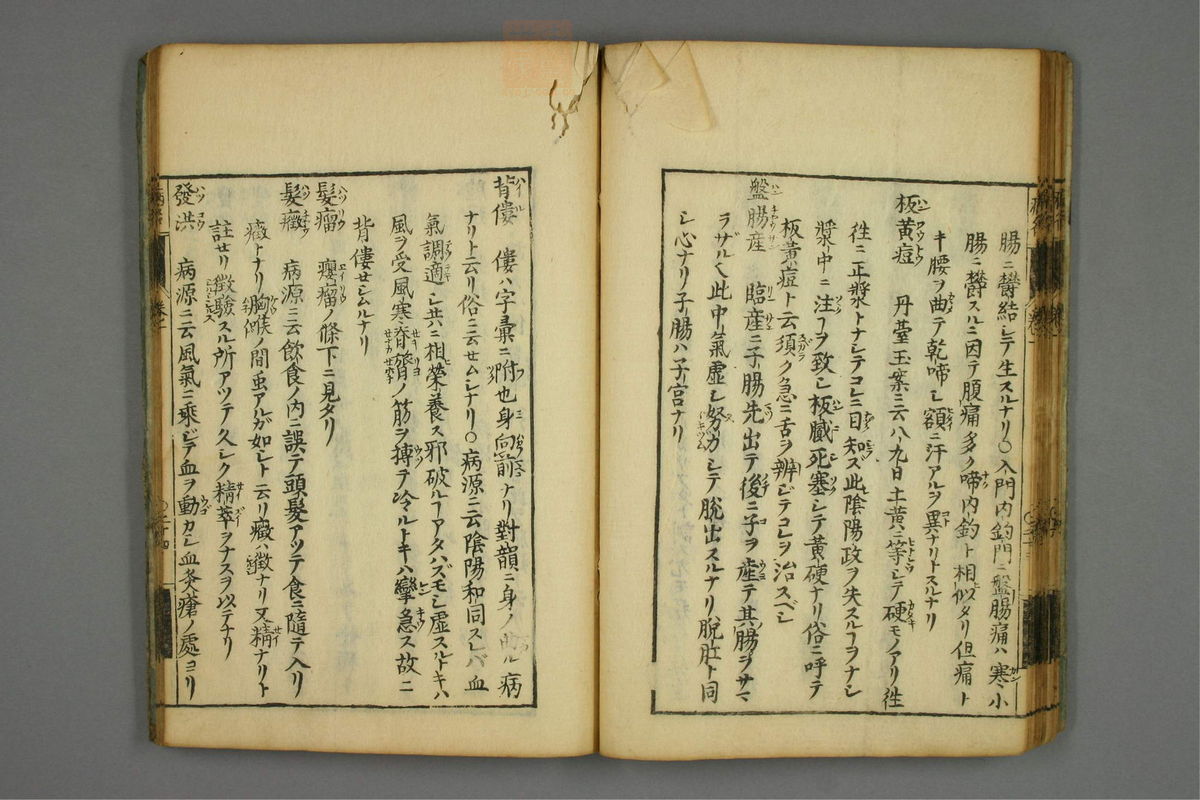 腸ニ欝結シテ生スルナリ○入門内釣門ニ盤腸痛ハ寒小
腸ニ欝スルニ因テ腹痛多ク啼内釣ト相似タリ但痛ト
キ腰ヲ曲テ乾啼シ額ニ汗アルヲ異ナリトスルナリ
板黄痘 丹薹玉案ニ云八九日土黄ニ等シテ硬モノアリ徃
徃ニ正漿トナシテコレニ目知ズ此陰陽政ヲ失スルヿヲナシ
漿中ニ注ヿヲ致シ板臓死塞シテ黄硬ナリ俗ニ呼テ
板黄痘ト云須ク急ニ舌ヲ辨ジテコレヲ治スベシ
盤腸産 臨産ニ子腸先出テ後ニ子ヲ産テ其腸ヲサマ
ラザル此中氣虚シ努力シテ脱出スルナリ脱肛ト同
シ心ナリ子腸ハ子宮ナリ
背僂 僂ハ字彙ニ附也身向前ナリ對韻ニ身ノ曲ル病
ナリト云リ俗ニ云セムシナリ○病源ニ云陰陽和同スレバ血
氣調適シ共ニ相榮養ス邪破ルヿアタハズモシ虚スルトキハ
風ヲ受風寒脊膂ノ筋ヲ搏テ冷ルトキハ攣急ス故ニ
背僂セシムルナリ
髮瘤 癭瘤ノ條下ニ見タリ
髮癥 病源ニ云飲食ノ内ニ誤テ頭髮アツテ食ニ隨テ入リ
癥トナリ胸喉ノ間虫アルガ如シト云リ癥ハ徴ナリ又精ナリト
註セリ徴驗スル所アツテ久シク精萃ヲナスヲ以テナリ
發洪 病源ニ云風氣ニ乘ジテ血ヲ動カシ血灸瘡ノ處ヨリ